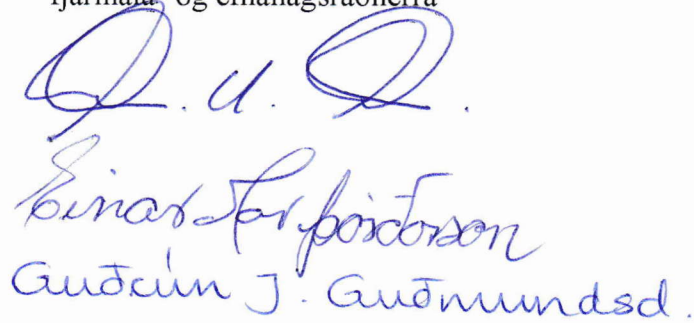 fjármála- og efnahagsráðherra
Einar Mar Þórðarson
Guðrún J. Guðmundsd.